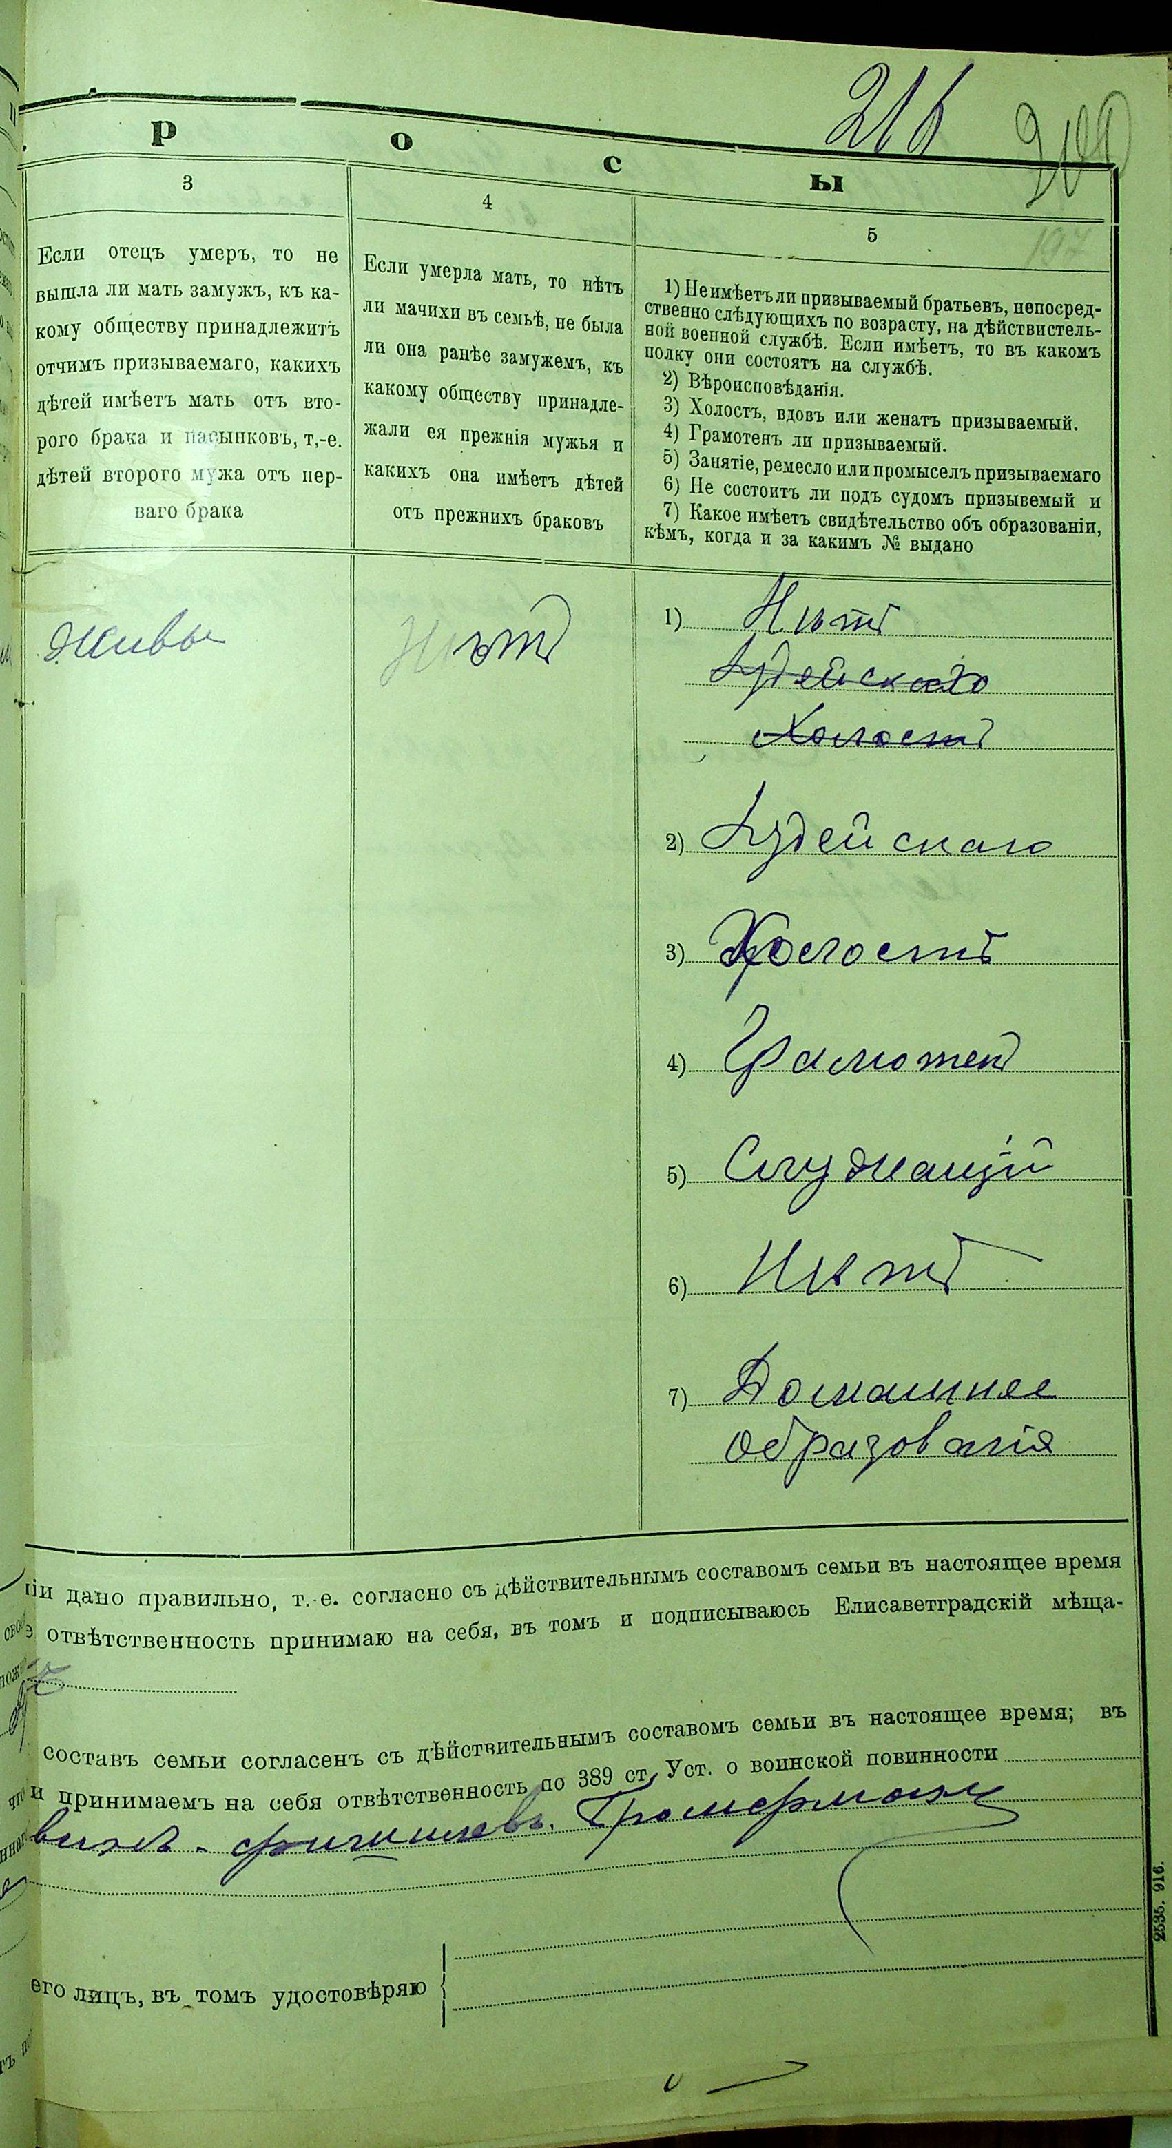 216
200
197
Р О С Ы
3
Если отецъ умеръ, то не
вышла ли мать замужъ, къ ка-
кому обществу принадлежитъ
отчимъ призываемаго, какихъ
дѣтей имѣетъ мать отъ вто-
рого брака и пасынковъ, т,-е.
дѣтей второго мужа отъ пер-
ваго брака
4
Если умерла мать, то нѣтъ
ли мачихи въ семьѣ, не была
ли она ранѣе замужемъ, къ
какому обществу принадле-
жали ея прежнія мужья и
какихъ она имѣетъ дѣтей
отъ прежнихъ браковъ
5
1) Не имѣетъ ли призываемый братьевъ, непосред-
ственно слѣдующихъ по возрасту, на дѣйствитель-
ной военной службѣ. Если имѣетъ, то въ какомъ
полку они состоятъ на службѣ.
2) Вѣроисповѣданія.
3) Холостъ, вдовъ или женатъ призываемый.
4) Грамотенъ ли призываемый.
5) Занятіе, ремесло или промыселъ призываемаго
6) Не состоитъ ли подъ судомъ призывемый и
7) Какое имѣетъ свидѣтельство объ образованіи,
кѣмъ, когда и за какимъ № выдано
Живы
Нѣтъ
1) Нѣтъ
Іудейскаго
Холостъ
2) Іудейскаго
3) Холостъ
4) Грамотенъ
5) Служащій
6) Нѣтъ
7) Домашнее
образованія
іи дано правильно, т.-е. согласно съ дѣйствительнымъ составомъ семьи въ настоящее время
отвѣтственность принимаю на себя, въ томъ и подписываюсь Елисаветградскій мѣща-
составъ семьи согласенъ съ дѣйствительнымъ составомъ семьи въ настоящее время; въ
и принимаемъ на себя отвѣтственность по 389 ст. Уст. о воинской повинности
его лицъ, въ томъ удостовѣряю
2535. 916.